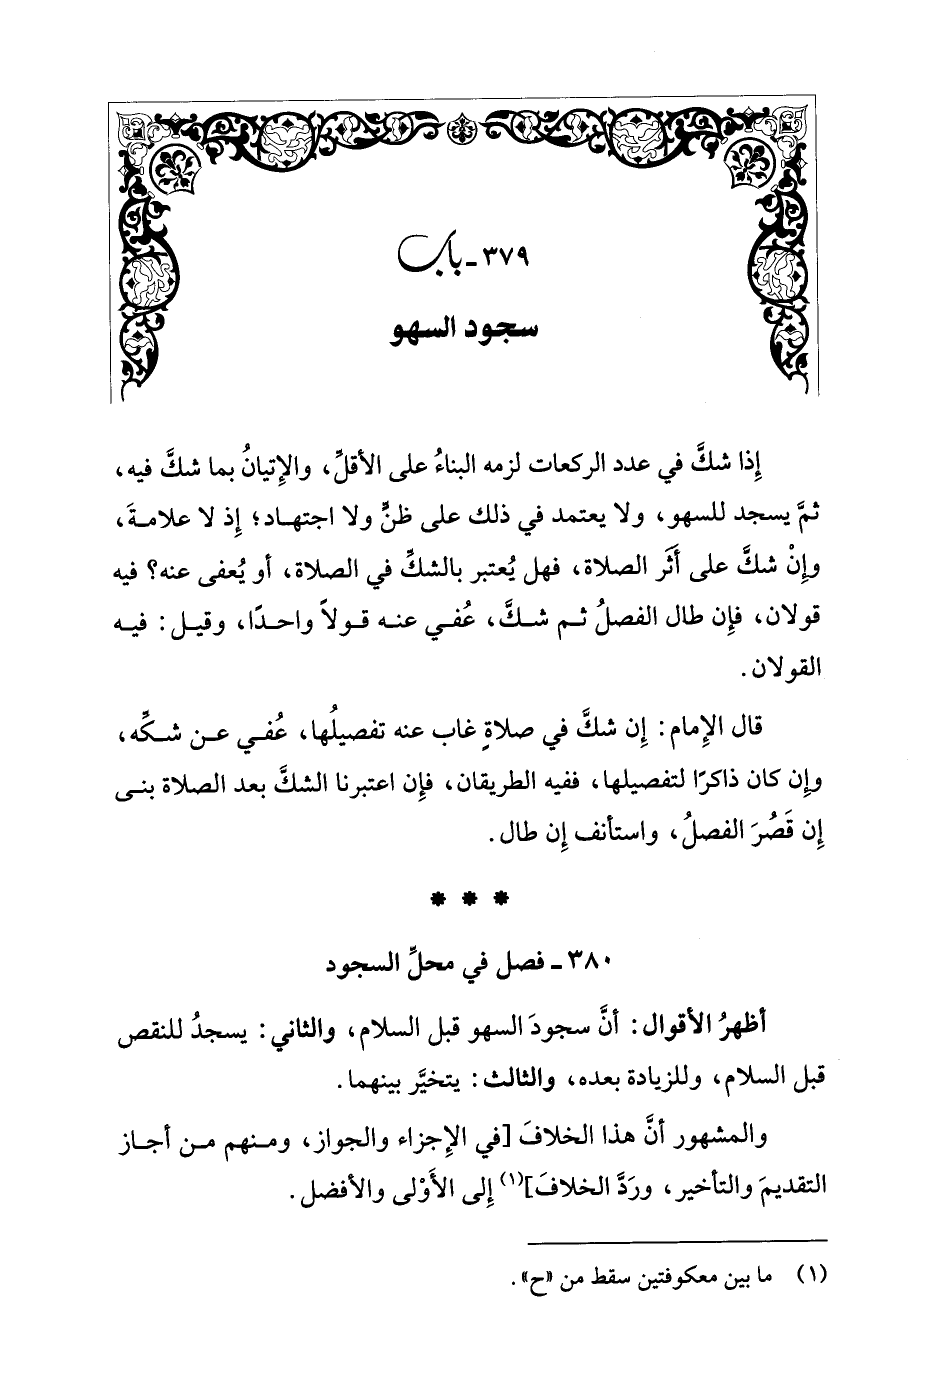 ٣٧٩ - باب
سجود السهو
إِذا شكَّ في عدد الركعات لزمه البناءُ على الأقلِّ، والإِتيانُ بما شكَّ فيه،
ثمَّ يسجد للسهو، ولا يعتمد في ذلك على ظنٍّ ولا اجتهاد؛ إِذ لا علامةَ،
وإِنْ شكَّ على أَثَر الصلاة، فهل يُعتبر بالشكِّ في الصلاة، أو يُعفى عنه؟ فيه
قولان، فإِن طال الفصلُ ثم شكَّ، عُفي عنه قولاً واحدًا، وقيل: فيه
القولان.
قال الإِمام: إِن شكَّ في صلاةٍ غاب عنه تفصيلُها، عُفي عن شكِّه،
وإِن كان ذاكرًا لتفصيلها، ففيه الطريقان، فإِن اعتبرنا الشكَّ بعد الصلاة بنى
إِن قَصُرَ الفصلُ، واستأنف إِن طال.
* * *
٣٨٠ - فصل في محلِّ السجود
أظهرُ الأقوال: أنَّ سجودَ السهو قبل السلام، والثاني: يسجدُ للنقص
قبل السلام، وللزيادة بعده، والثالث: يتخيَّر بينهما.
والمشهور أنَّ هذا الخلافَ [في الإِجزاء والجواز، ومنهم من أجاز
التقديمَ والتأخير، وردَّ الخلافَ](١) إِلى الأَوْلى والأفضل.
(١) ما بين معكوفتين سقط من «ح».